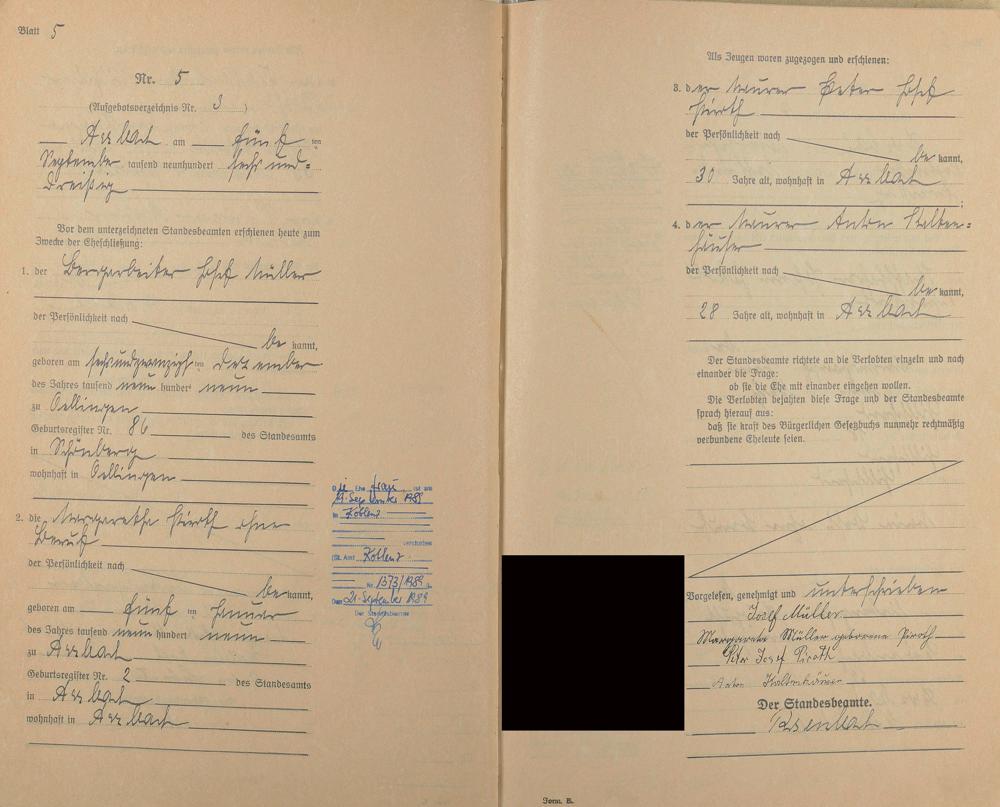 Blatt 5
Nr. 5
(Aufgebotsverzeichnis Nr. 3)
Arzbach am fünften
September tausend neunhundert sechs und=
dreißig
Vor dem unterzeichneten Standesbeamten erschienen heute zum
Zwecke der Eheschließung:
1. der Bergarbeiter Josef Müller
der Persönlichkeit nach
be kannt,
geboren am sechsundzwanzigsten Dezember
des Jahres tausend neun hundert neun
zu Oellingen
Geburtsregister Nr. 86 des Standesamts
in Schönberg
wohnhaft in Oellingen
2. die Margaretha Piroth ohne
Beruf
der Persönlichkeit nach
be kannt,
geboren am fünf ten Januar
des Jahres tausend neun hundert neun
zu Arzbach
Geburtsregister Nr. 2 des Standesamts
in Arzbach
wohnhaft in Arzbach
Die Ehefrau ist am
21. September 1989
in Koblenz
verstorben
(St. Amt Koblenz
Nr. 1373/1989)
Den 21. September 1989
Der Standesbeamte
Als Zeugen waren zugezogen und erschienen:
3. der Maurer Peter Josef
Piroth
der Persönlichkeit nach
be kannt,
30 Jahre alt, wohnhaft in Arzbach
;
4. der Maurer Anton Kalten=
häuser
der Persönlichkeit nach
be kannt,
28 Jahre alt, wohnhaft in Arzbach
Der Standesbeamte richtete an die Verlobten einzeln und nach
einander die Frage:
ob sie die Ehe mit einander eingehen wollen.
Die Verlobten bejahten diese Frage und der Standesbeamte
sprach hierauf aus:
daß sie kraft des Bürgerlichen Gesetzbuchs nunmehr rechtmäßig
verbundene Eheleute seien.
Vorgelesen, genehmigt und unterschrieben
Josef Müller
Margarete Müller geborene Piroth
Peter Josef Piroth
Anton Kaltenhäuser
Der Standesbeamte.
Form. E.